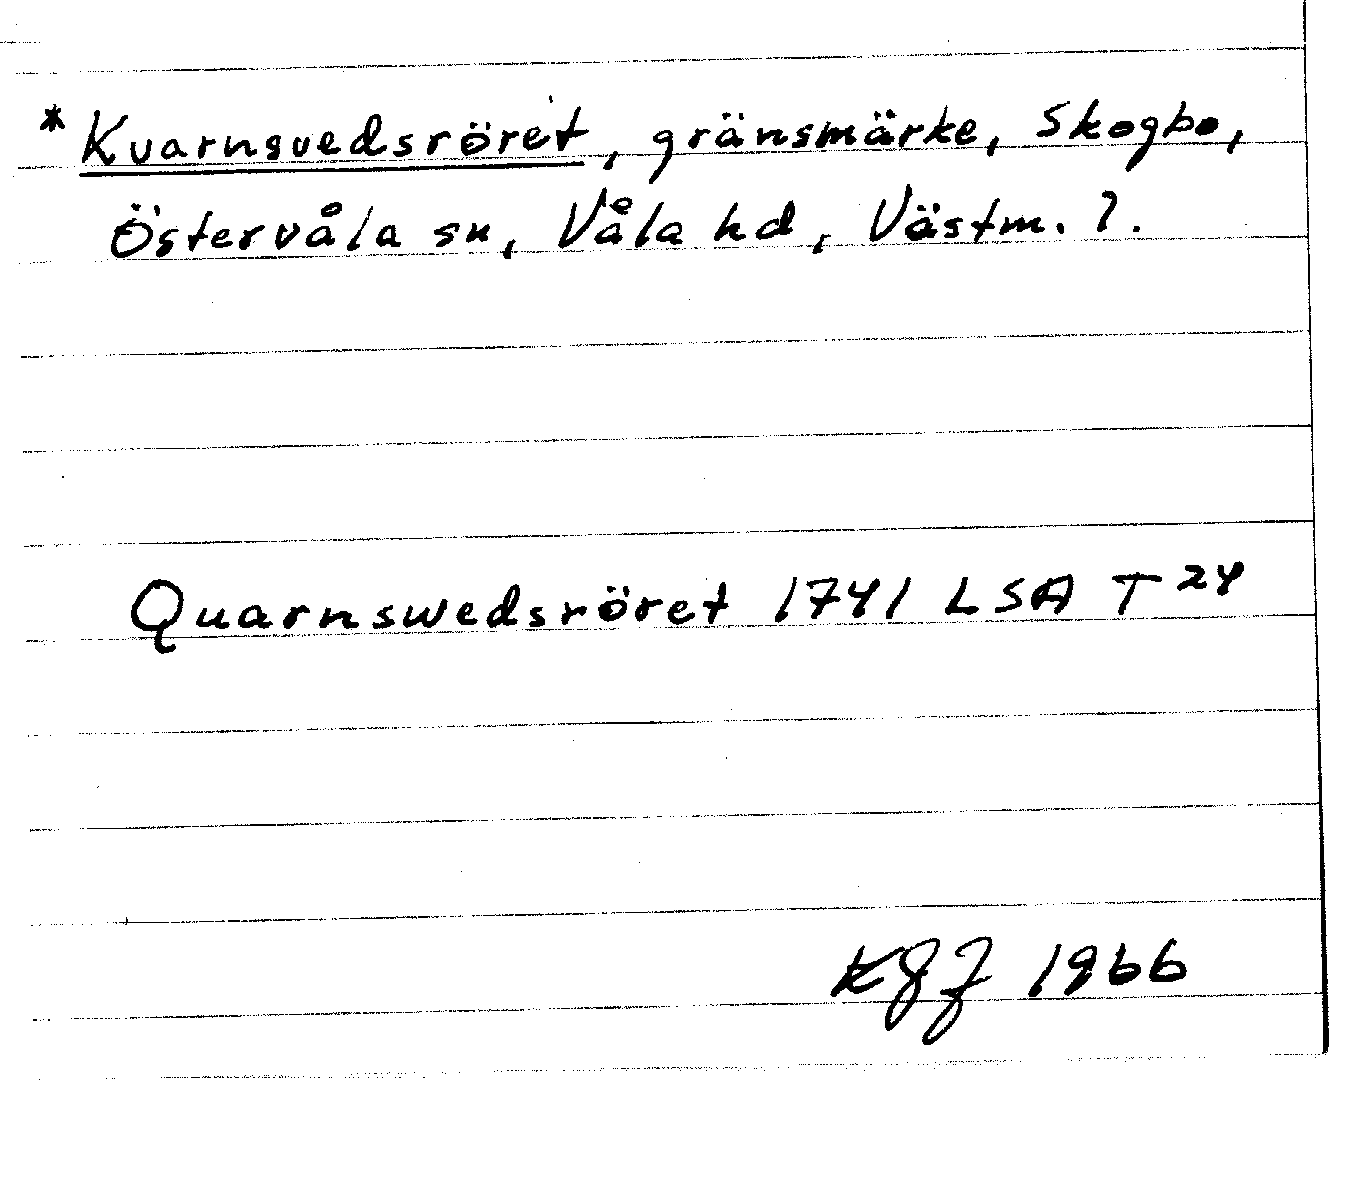 * Kvarnsvedsröret, gränsmärke, Skogbo,
Östervåla sn, Våla hd, Västm. l.
Quarnswedsröret 1741 LSA T 24
KGF 1966